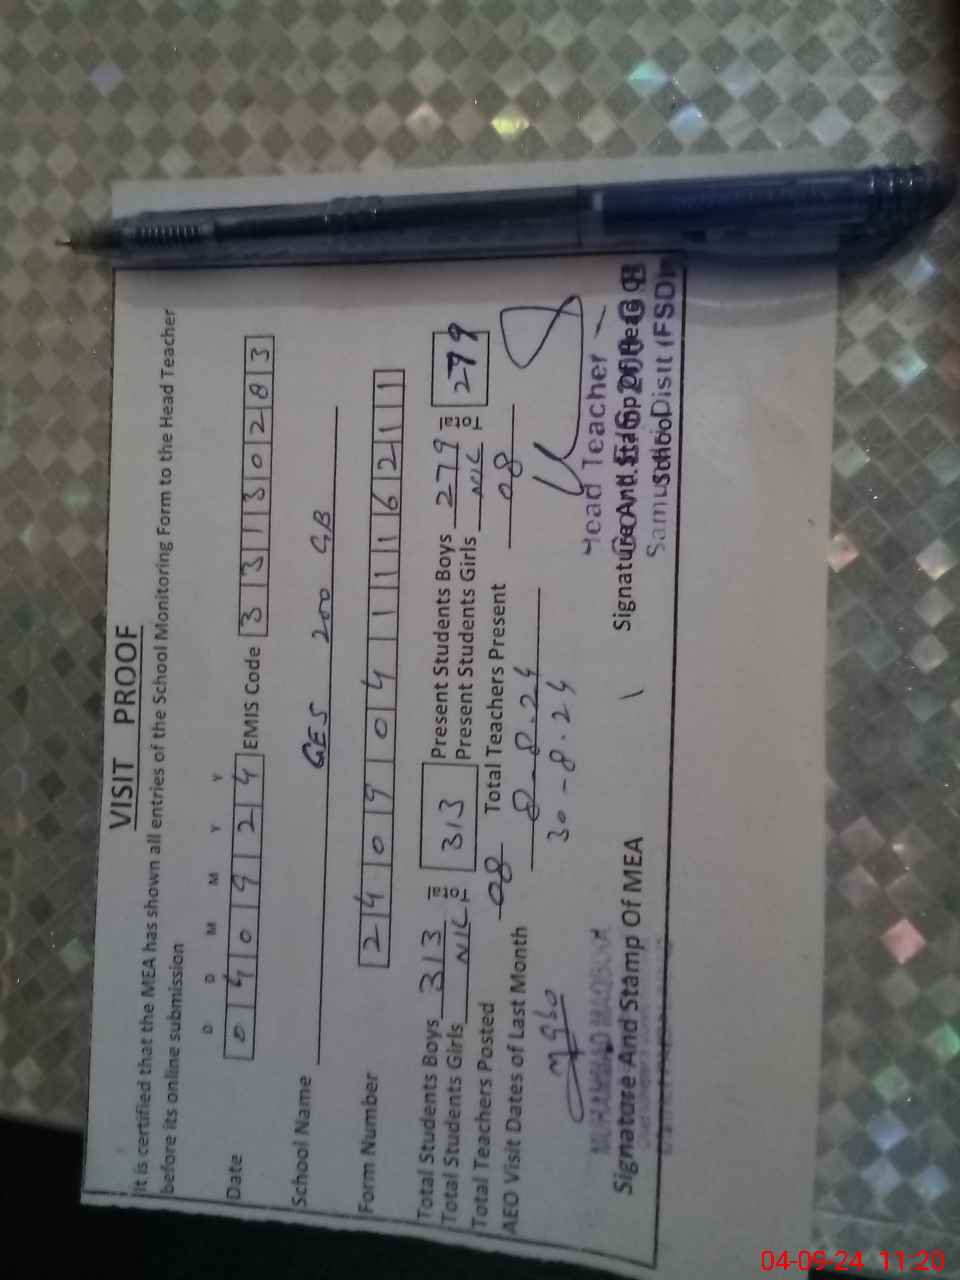 VISIT PROOF
It is certified that the MEA has shown all entries of the School Monitoring Form to the Head Teacher
before its online submission
D D M M Y Y
Date 0 4 0 9 2 4 EMIS Code 3 3 1 3 0 2 8 3
School Name GES 200 GB
Form Number 2 4 0 9 0 4 1 1 1 6 2 1 1
Total Students Boys 313 Total 313 Present Students Boys 279 Total 279
Total Students Girls NIL Present Students Girls NIL
Total Teachers Posted 08 Total Teachers Present 08
AEO Visit Dates of Last Month 8-8-24
30-8-24
Head Teacher
MUHAMMAD MAQSOOD
Signature And Stamp Of MEA Signature And Stamp Of Head
School
Samu Distt (FSD)
04-09-24 11:20